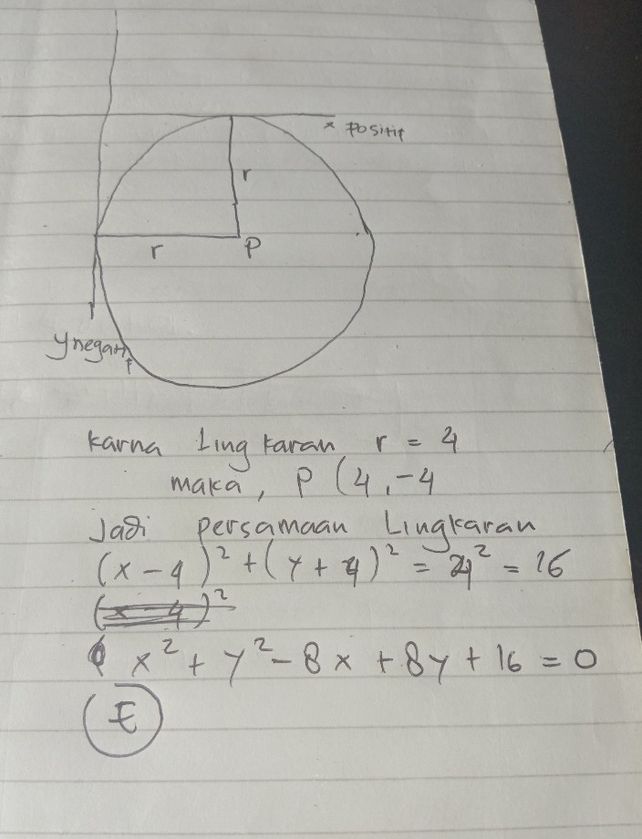 x Positif
r
r
P
y negatif
karna Lingkaran r = 4
maka, P (4,-4
Jadi persamaan Lingkaran
(x-4)² + (y+4)² = 4² = 16
(x-4)²
x² + y² - 8x + 8y + 16 = 0
E